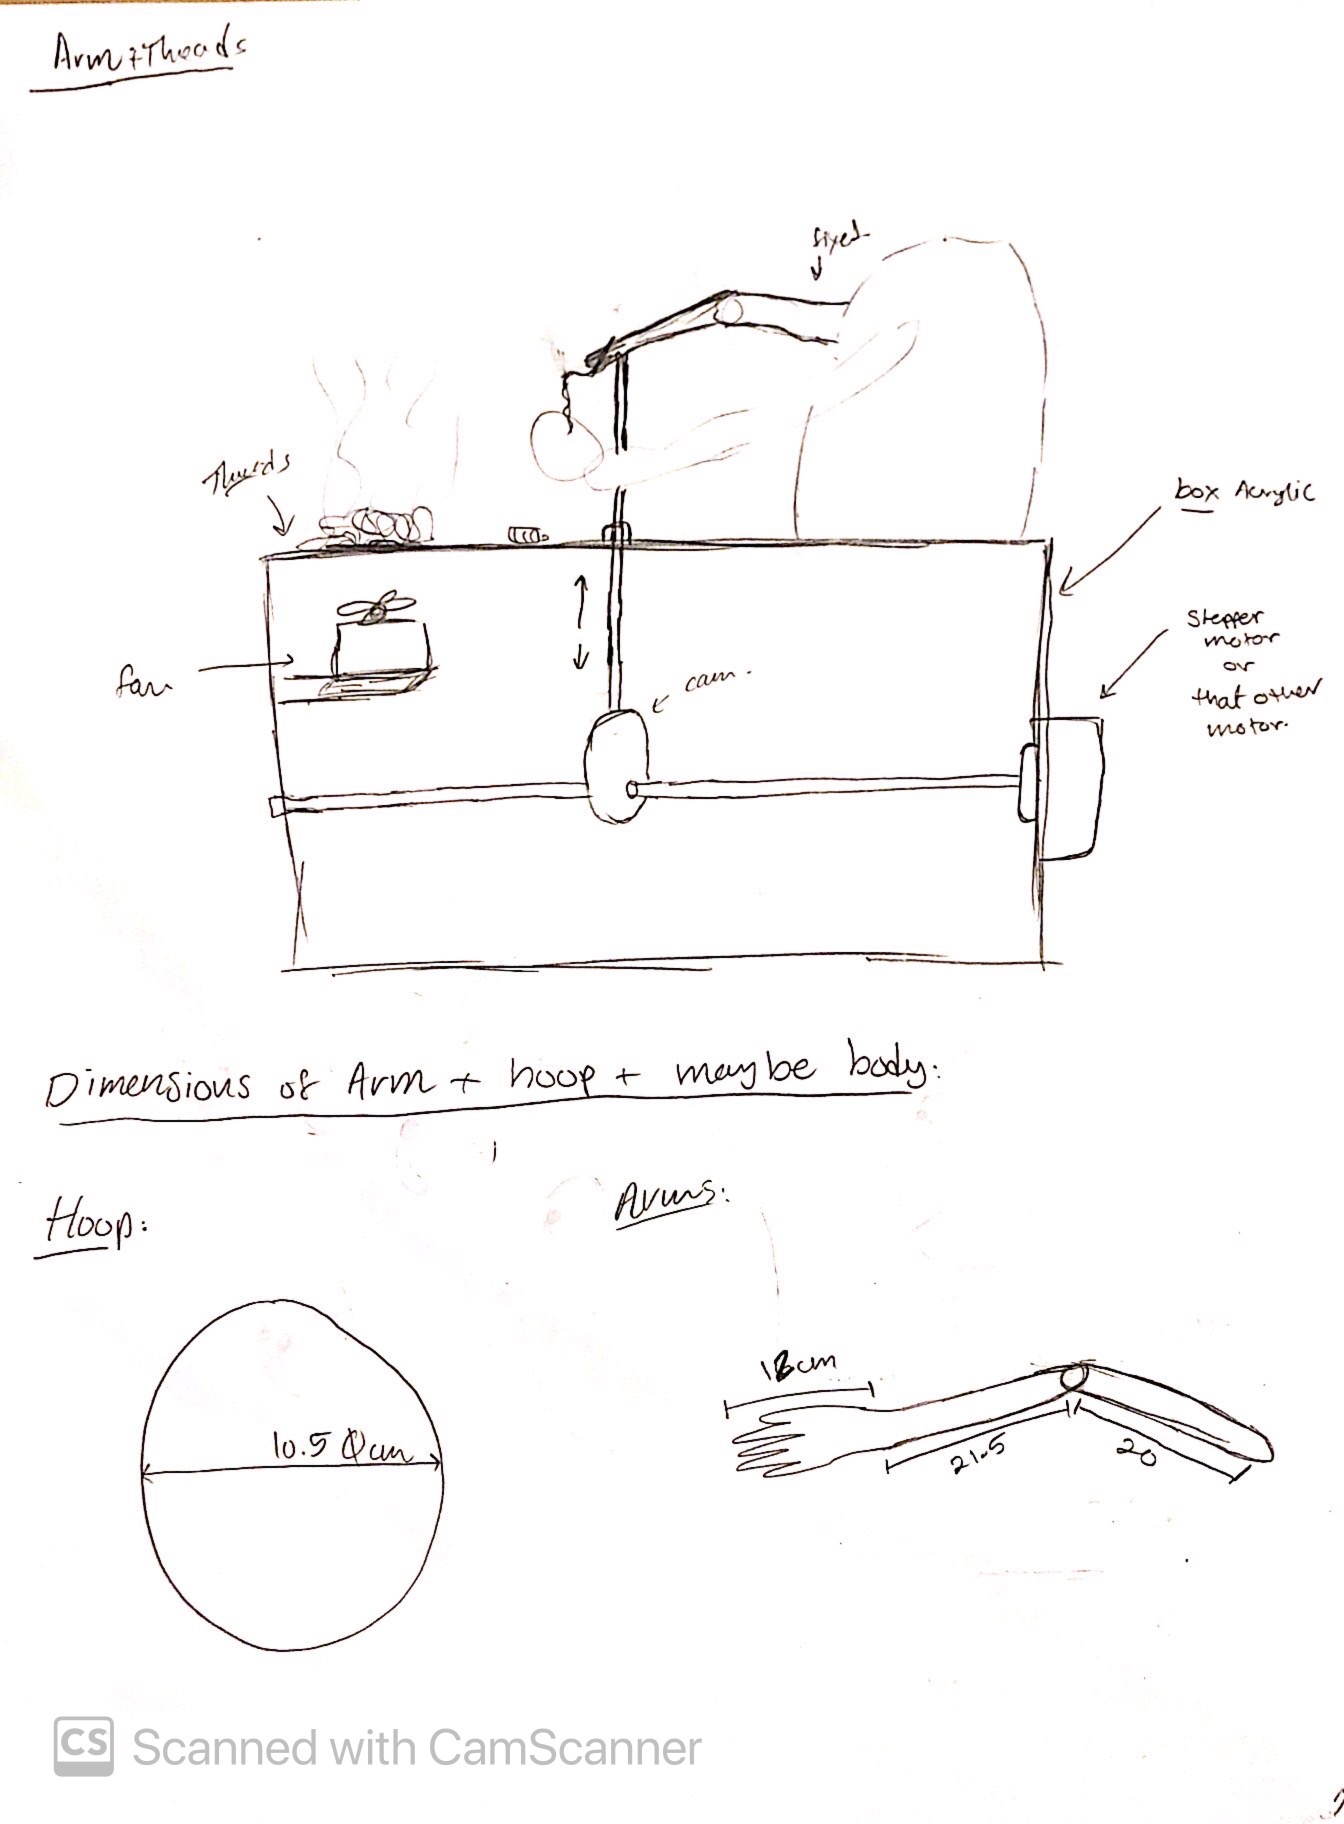 Arm + Theads
fixed
Threads
box Acrylic
Stepper
motor
or
that other
motor.
fan
cam.
Dimensions of Arm + hoop + maybe body:
Hoop:
Arms:
18cm
10.5 Φcm
21.5
20
CS Scanned with CamScanner